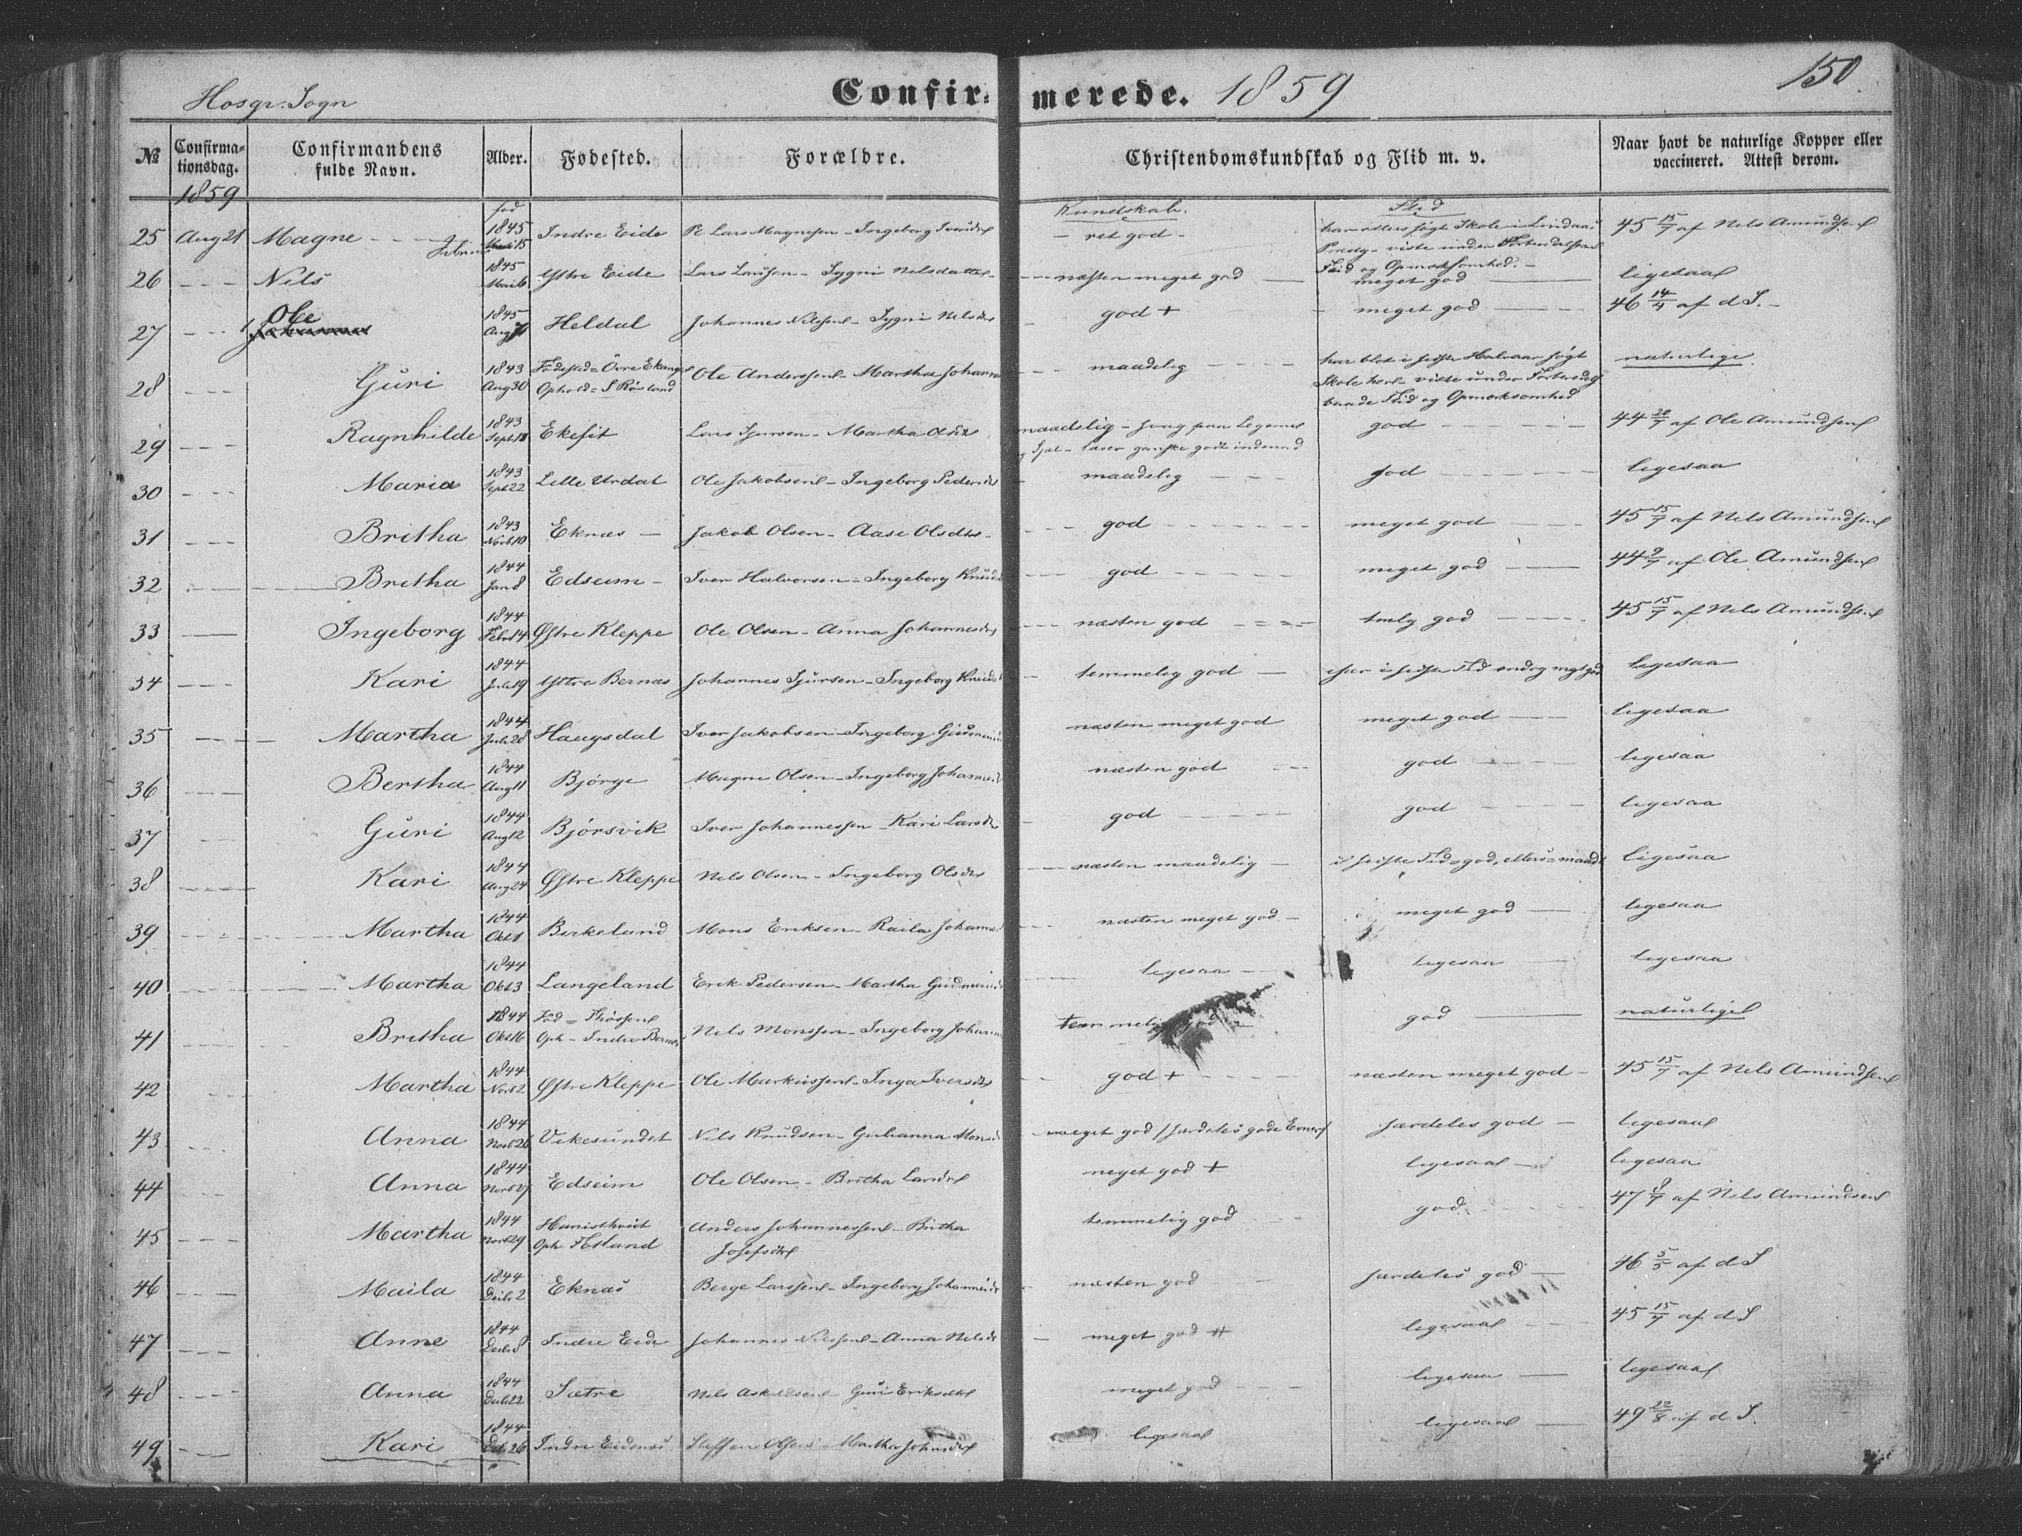 Hosgr. Sogn Confir- merede. 1859 150.
№ Confirma-tionsdag. Confirmandens fulde Navn. Alder. Fødested. Forældre. Christendomskundskab og Flid m. v. Naar havt de naturlige Kopper eller vaccineret. Attest derom.
1859 fød Kundskab. Flid
25 Aug 21 Magne 1845 15 Indre Eide Lars Magnesen - Ingeborg - ret god - 45 15/7 af Nels Amundsen
Flid og Opmærksomhed.
26 Nils 1845 6 Ystre Eide Lars Larssen - Sygni Nelsdatter næsten meget god meget god ligesaa
27 Ole 1845 Aug Heldal Johannes Nilssen - Sygni Nelsdtr god + meget god 46 14/4 af d S.
28 Guri 1843 Aug 30 Fødested = Øvre Ekanger Ophold = S Røsland Ole Anderssen - Martha Johannes maadelig har blot i sidste Halvaar søgt naturlige
Skole her - viste under Forbered
baade Flid og Opmærksomhed
29 Ragnhilde 1843 Sept 18 Lars Sjursen - Martha maadelig - svag paa Legeme god 44 20/7 af Ole Amundsen
og Sjæl - læser ganske godt indenad
30 Maria 1843 Sept 22 Lille Urdal Ole Jakobsen - Ingeborg Pedersdtr maadelig god ligesaa
31 Britha 1843 Novb 10 Eknæs Jakob Olsen - Aase Olsdtr god meget god 45 15/7 af Nels Amundsen
32 Britha 1844 Jan 8 Edseim Iver Halvorsen - Ingeborg Knuds god meget god 44 9/7 af Ole Amundsen
33 Ingeborg 1844 Febr 14 Østre Kleppe Ole Olsen - Anna Johannesdtr næsten god temlg god 45 15/7 af Nels Amundsen
34 Kari 1844 Juli 19 Ystre Bernæs Johannes Sjursen - Ingeborg Knuds temmelig god ligesaa
35 Martha 1844 Juli 28 Haugsdal Iver Jakobsen - Ingeborg næsten meget god meget god ligesaa
36 Bertha 1844 Aug 11 Bjørge Magne Olsen - Ingeborg Johannes næsten god god ligesaa
37 Guri 1844 Aug 12 Bjørsvik Iver Johannessen - Kari Larsdtr god god ligesaa
38 Kari 1844 Aug 24 Østre Kleppe Nels Olsen - Ingeborg Olsdtr næsten maadelig i sidste Tid = god, ellers = maad ligesaa
39 Martha 1844 Okt 1 Birkeland Mons Eriksen - Raila Johannes næsten meget god meget god ligesaa
40 Martha 1844 Okt 3 Langeland Erik Pedersen - Martha Gudmunds ligesaa ligesaa ligesaa
41 Britha 1844 Okt 16 Fød = Oph - Indre Bernæs Nels Monssen - Ingeborg Johannes temmelig god god naturlige
42 Martha 1844 Novb 2 Østre Kleppe Ole Markussen - Inga Iversdtr god + næsten meget god 45 15/7 af Nels Amundsen
43 Anna 1844 Novb 26 Vikesundet Nils Knudsen - Gulianna Mons meget god / særdeles gode Evner særdeles god ligesaa
44 Anna 1844 Novb 27 Edseim Ole Olsen - Britha Larsdtr meget god + ligesaa ligesaa
45 Martha 1844 Novb 29 Oph Anders Johannessen - Britha Josefsdtr temmelig god god 47 8/7 af Nels Amundsen
46 Maila 1844 Decb 2 Eknæs Berge Larssen - Ingeborg Johannesdtr næsten god særdeles god 46 5/5 af d S
47 Anne 1844 Decb 8 Indre Eide Johannes Nilssen - Anna Nelsdtr meget god ligesaa 45 15/7 af d S
48 Anna 1844 Decb 22 Sætre Nils Askeldsen - Guri Eriksdtr meget god ligesaa ligesaa
49 Kari 1844 Decb 26 Indre Eidsnes Steffen Olsen - Martha Johnsdtr ligesaa ligesaa 49 22/8 af d S.